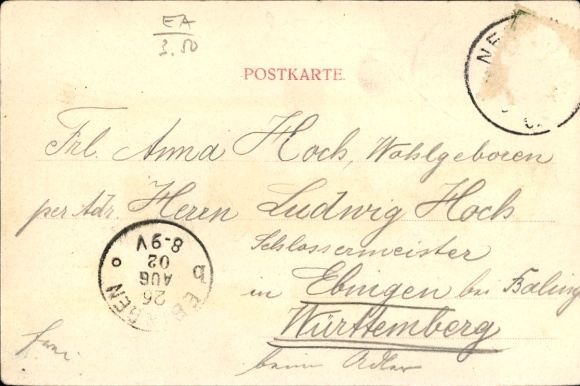 EA
3.50
POSTKARTE.
NE
Frl. Anna Hoch, Wohlgeboren
per Adr. Herrn Ludwig Hoch
Schlossermeister
in Ebingen bei Balingen
Württemberg
beim Adler
EBINGEN
26
AUG
02
8-9V
b